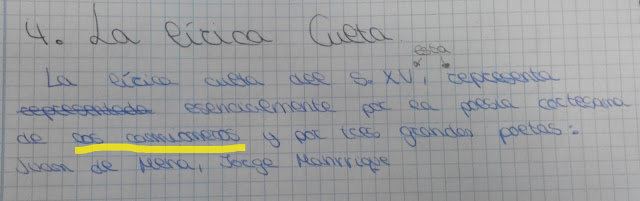 4. La lírica Culta
esta
La lírica culta del S. XV, representa
representada esencialmente por la poesía cortesana
de los cancioneros y por tres grandes poetas:
Juan de Mena, Jorge Manrrique